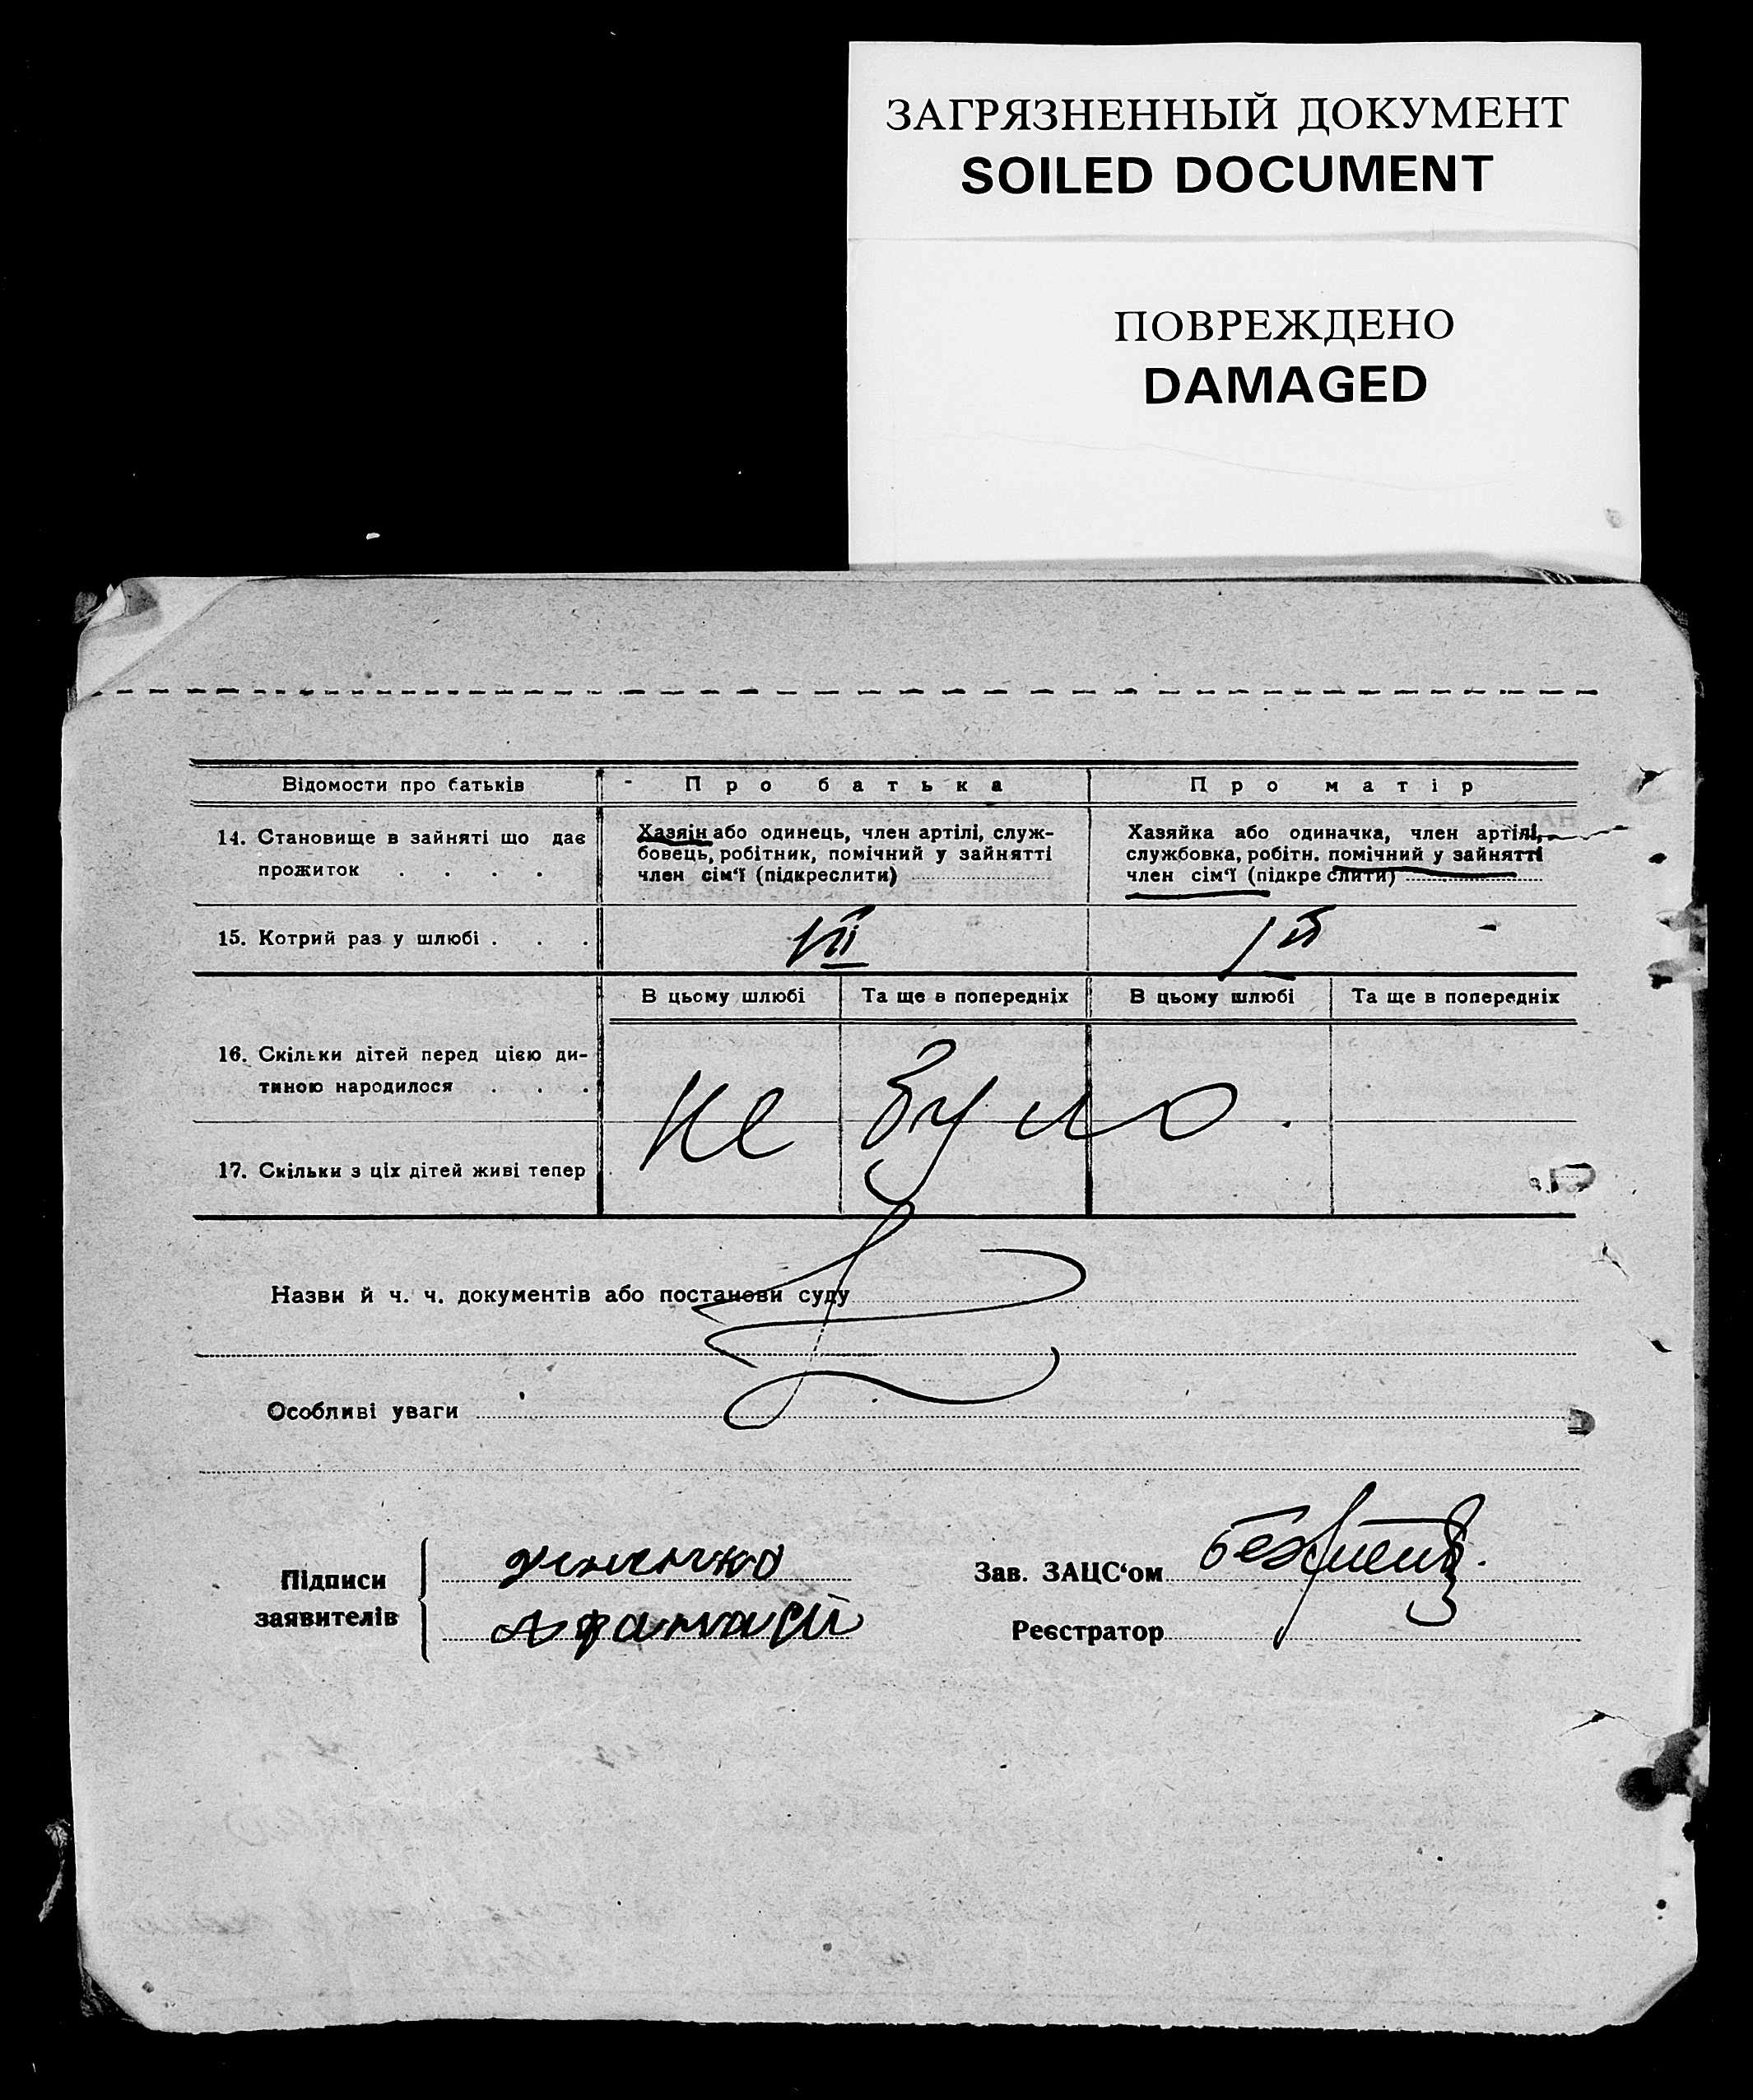 ЗАГРЯЗНЕННЫЙ ДОКУМЕНТ
SOILED DOCUMENT
ПОВРЕЖДЕНО
DAMAGED
Відомости про батьків
Про батька
Про матір
14. Становище в зайняті що дає
прожиток . . . .
Хазяїн або одинець, член артілі, служ-
бовець, робітник, помічний у зайнятті
член сім'ї (підкреслити)
Хазяйка або одиначка, член артілі,
службовка, робітн. помічний у зайнятті
член сім'ї (підкреслити)
15. Котрий раз у шлюбі . . .
1й
В цьому шлюбі
Та ще в попередніх
В цьому шлюбі
Та ще в попередніх
16. Скільки дітей перед цією ди-
тиною народилося . . .
не було.
17. Скільки з ціх дітей живі тепер
Назви й ч. ч. документів або постанови суду
Особливі уваги
Підписи
заявителів
Афанасій
Зав. ЗАЦС'ом
Реєстратор